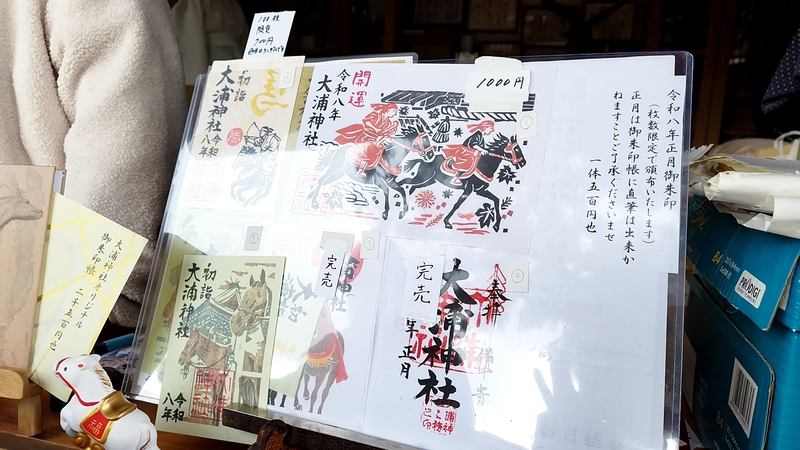 令和八年正月御朱印
(枚数限定で頒布いたします)
正月は御朱印帳に直筆は出来か
ねますことご了承くださいませ
一体五百円也
1000円
開運
令和八年
大浦神社
①
馬
初詣
大浦神社
令和八年
700円
初詣
大浦神社
令和
八年
完売
③
完売
②
奉拝
大浦神社
年正月
大浦神社オリジナル
御朱印帳
二千五百円也
福
PRODIGI
B4